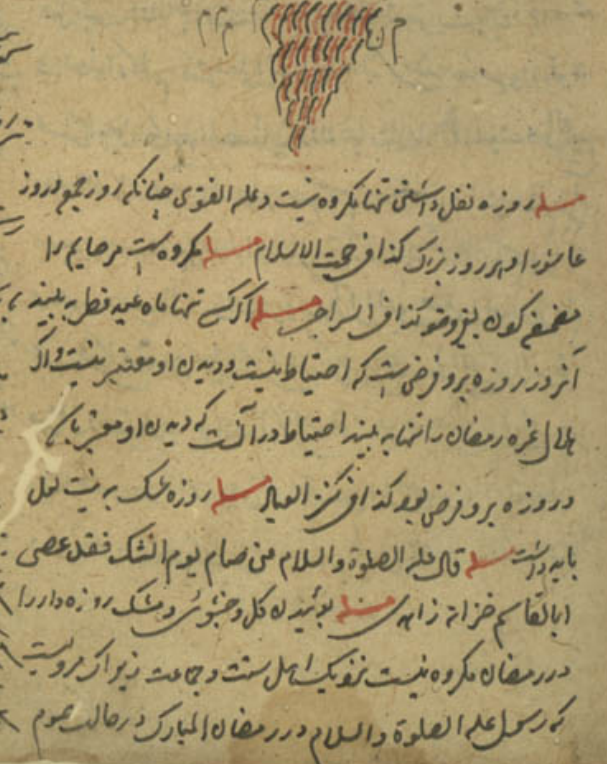 مسله روزه نفل داشتن تنها مکروه نیست و علیه الفتوی چنانکه روز جمع و روز
عاشورا و هر روز بزرگ کذا فی حجت الاسلام مسله مکروه است مر صایم را
مضمضه کردن بغیر وضو کذا فی السراجی مسله اگر کسی تنها ماه عید فطر به بیند
آنروز روزه برو فرض است که احتیاط نیست و دیدن او معتبر نیست و اگر
هلال غره رمضان را تنها به بیند احتیاط در آنست که دیدن او معتبر باشد
و روزه برو فرض بود کذا فی کنز العباد مسله روزه شک به نیت نفل
باید داشت مسله قال علیه الصلوة و السلام من صام یوم الشک فقد عصی
ابا القاسم خزانه زاهدی مسله بوئیدن گل و خشبوئی و مشک روزه دار را
در رمضان مکروه نیست نزدیک اهل سنت و جماعت زیراکه مرویست
که رسول علیه الصلوة و السلام در رمضان المبارک در حالت صوم